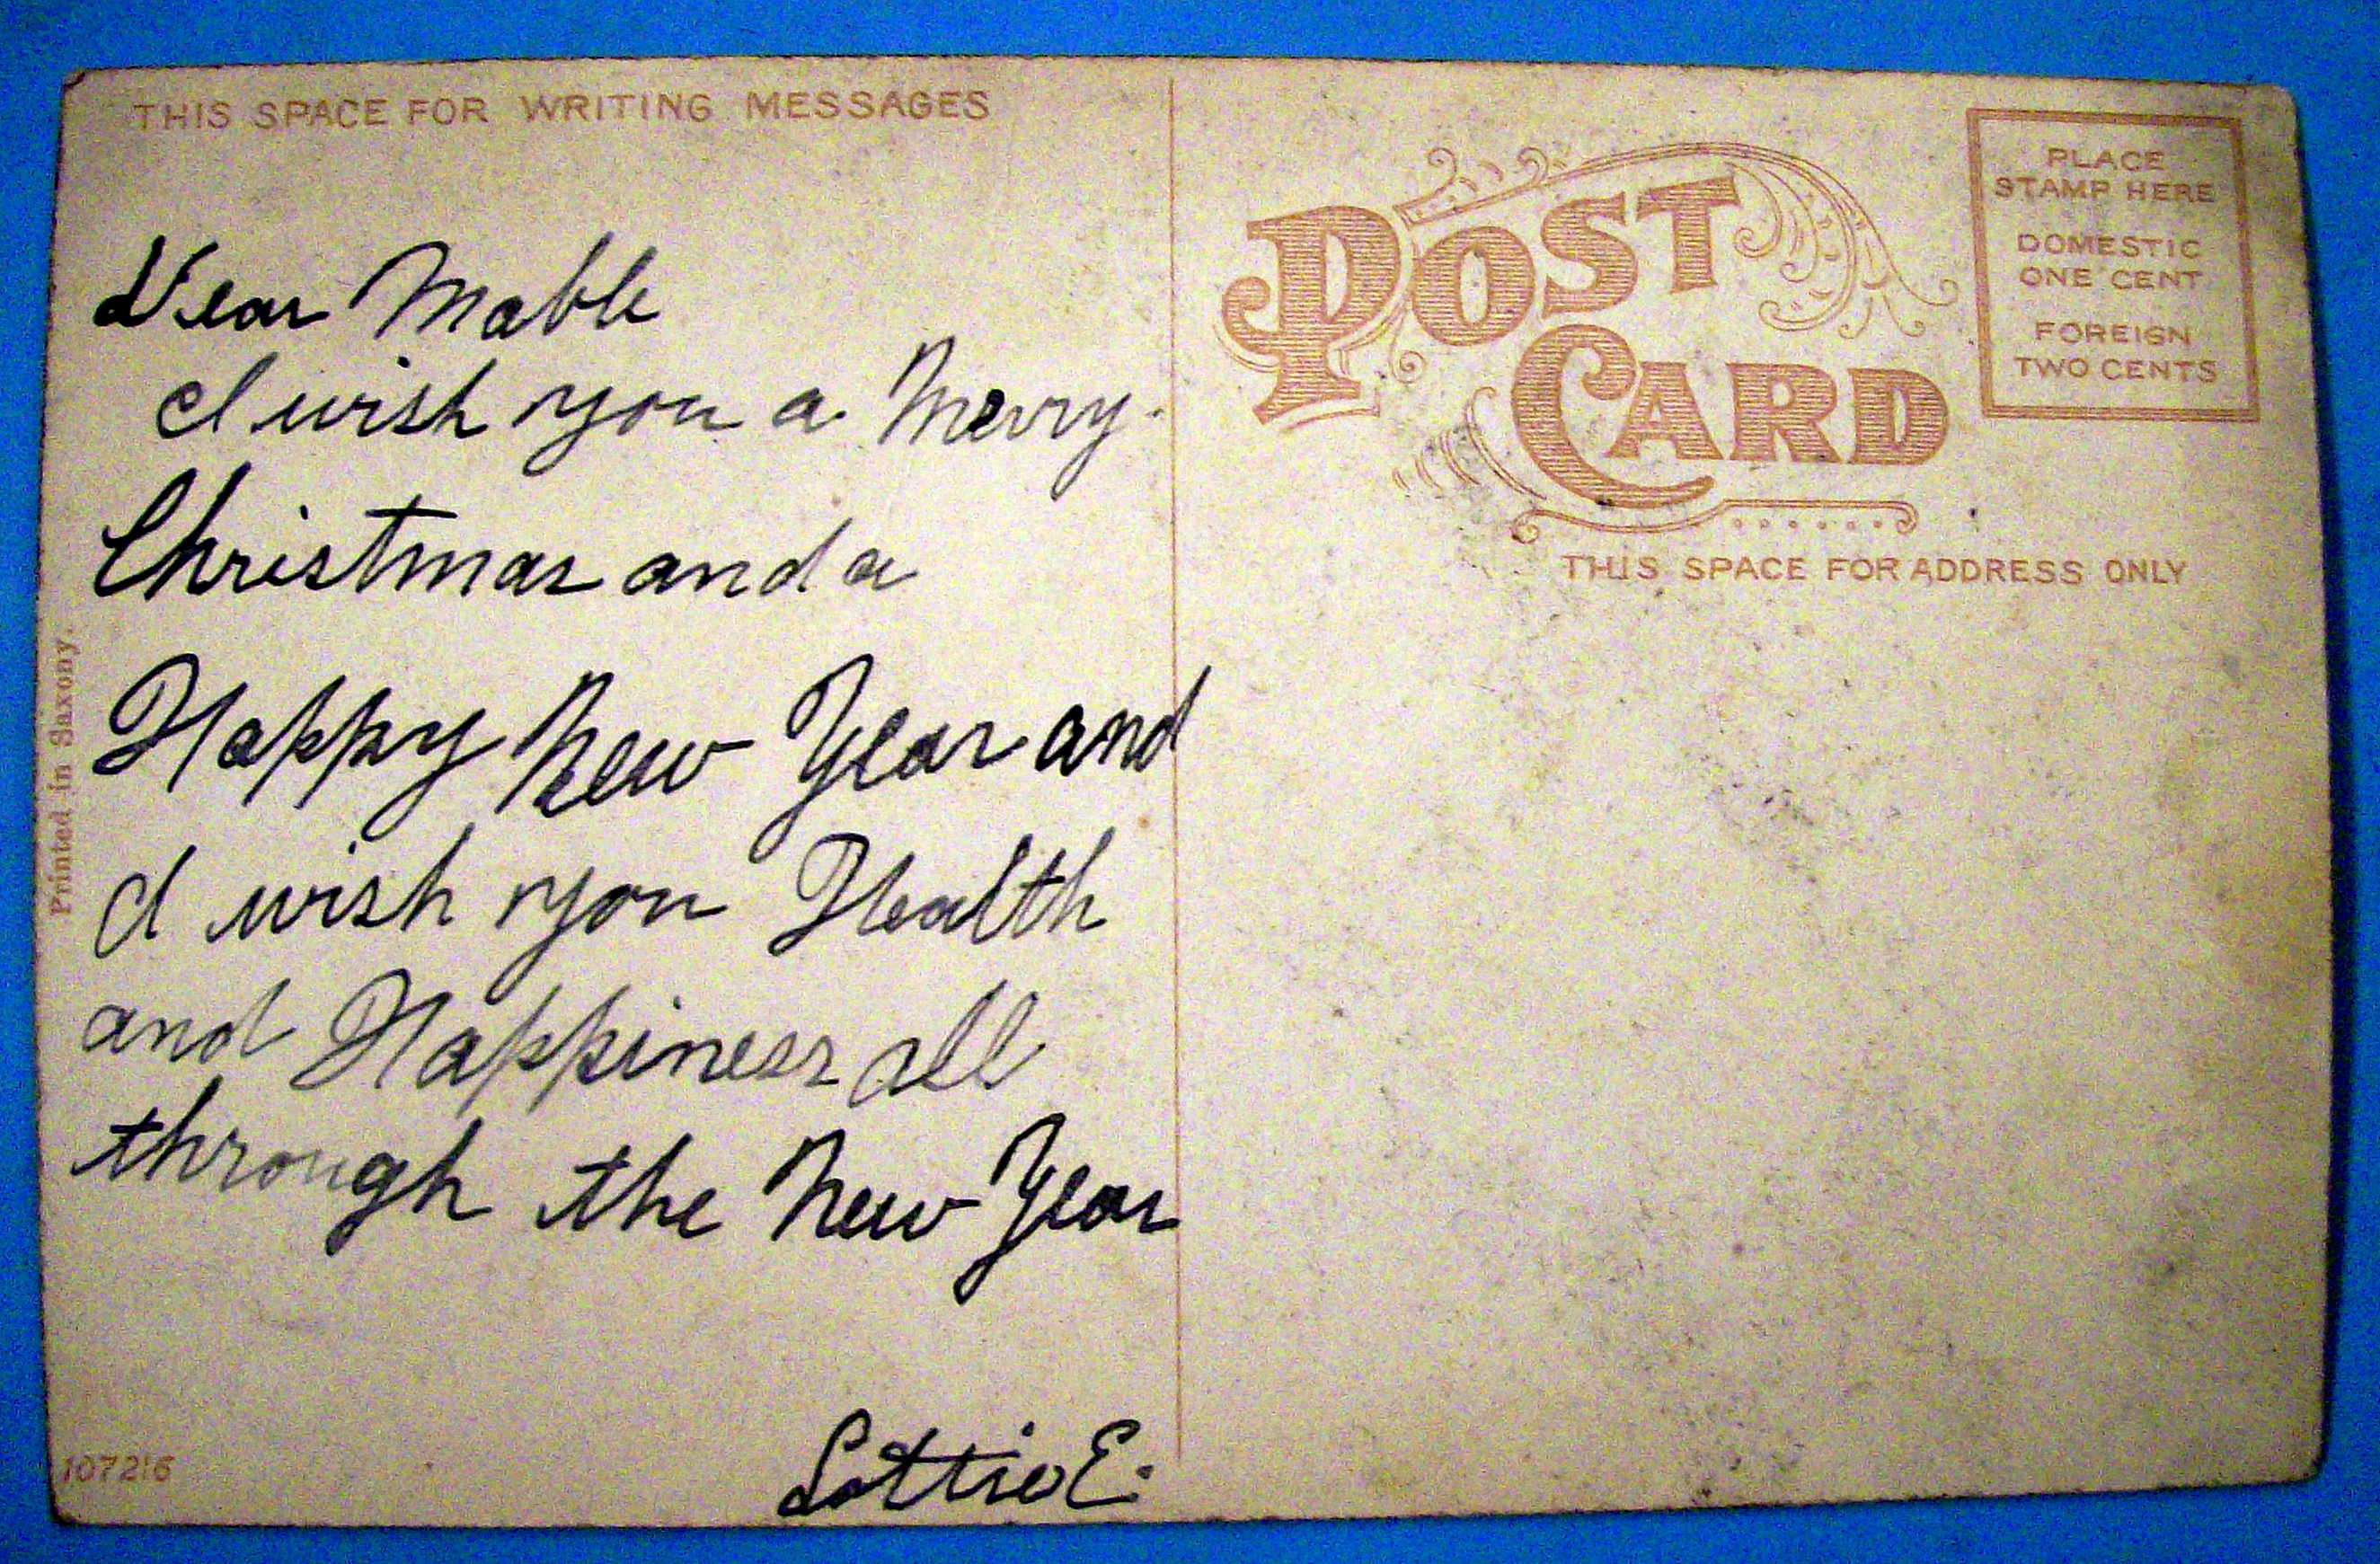 THIS SPACE FOR WRITING MESSAGES
Dear Mable
I wish you a Merry
Christmas and a
Happy New Year and
I wish you Health
and Happiness all
through the New Year
Lottie E.
Printed in Saxony.
107216
POST
CARD
PLACE
STAMP HERE
DOMESTIC
ONE CENT
FOREIGN
TWO CENTS
THIS SPACE FOR ADDRESS ONLY